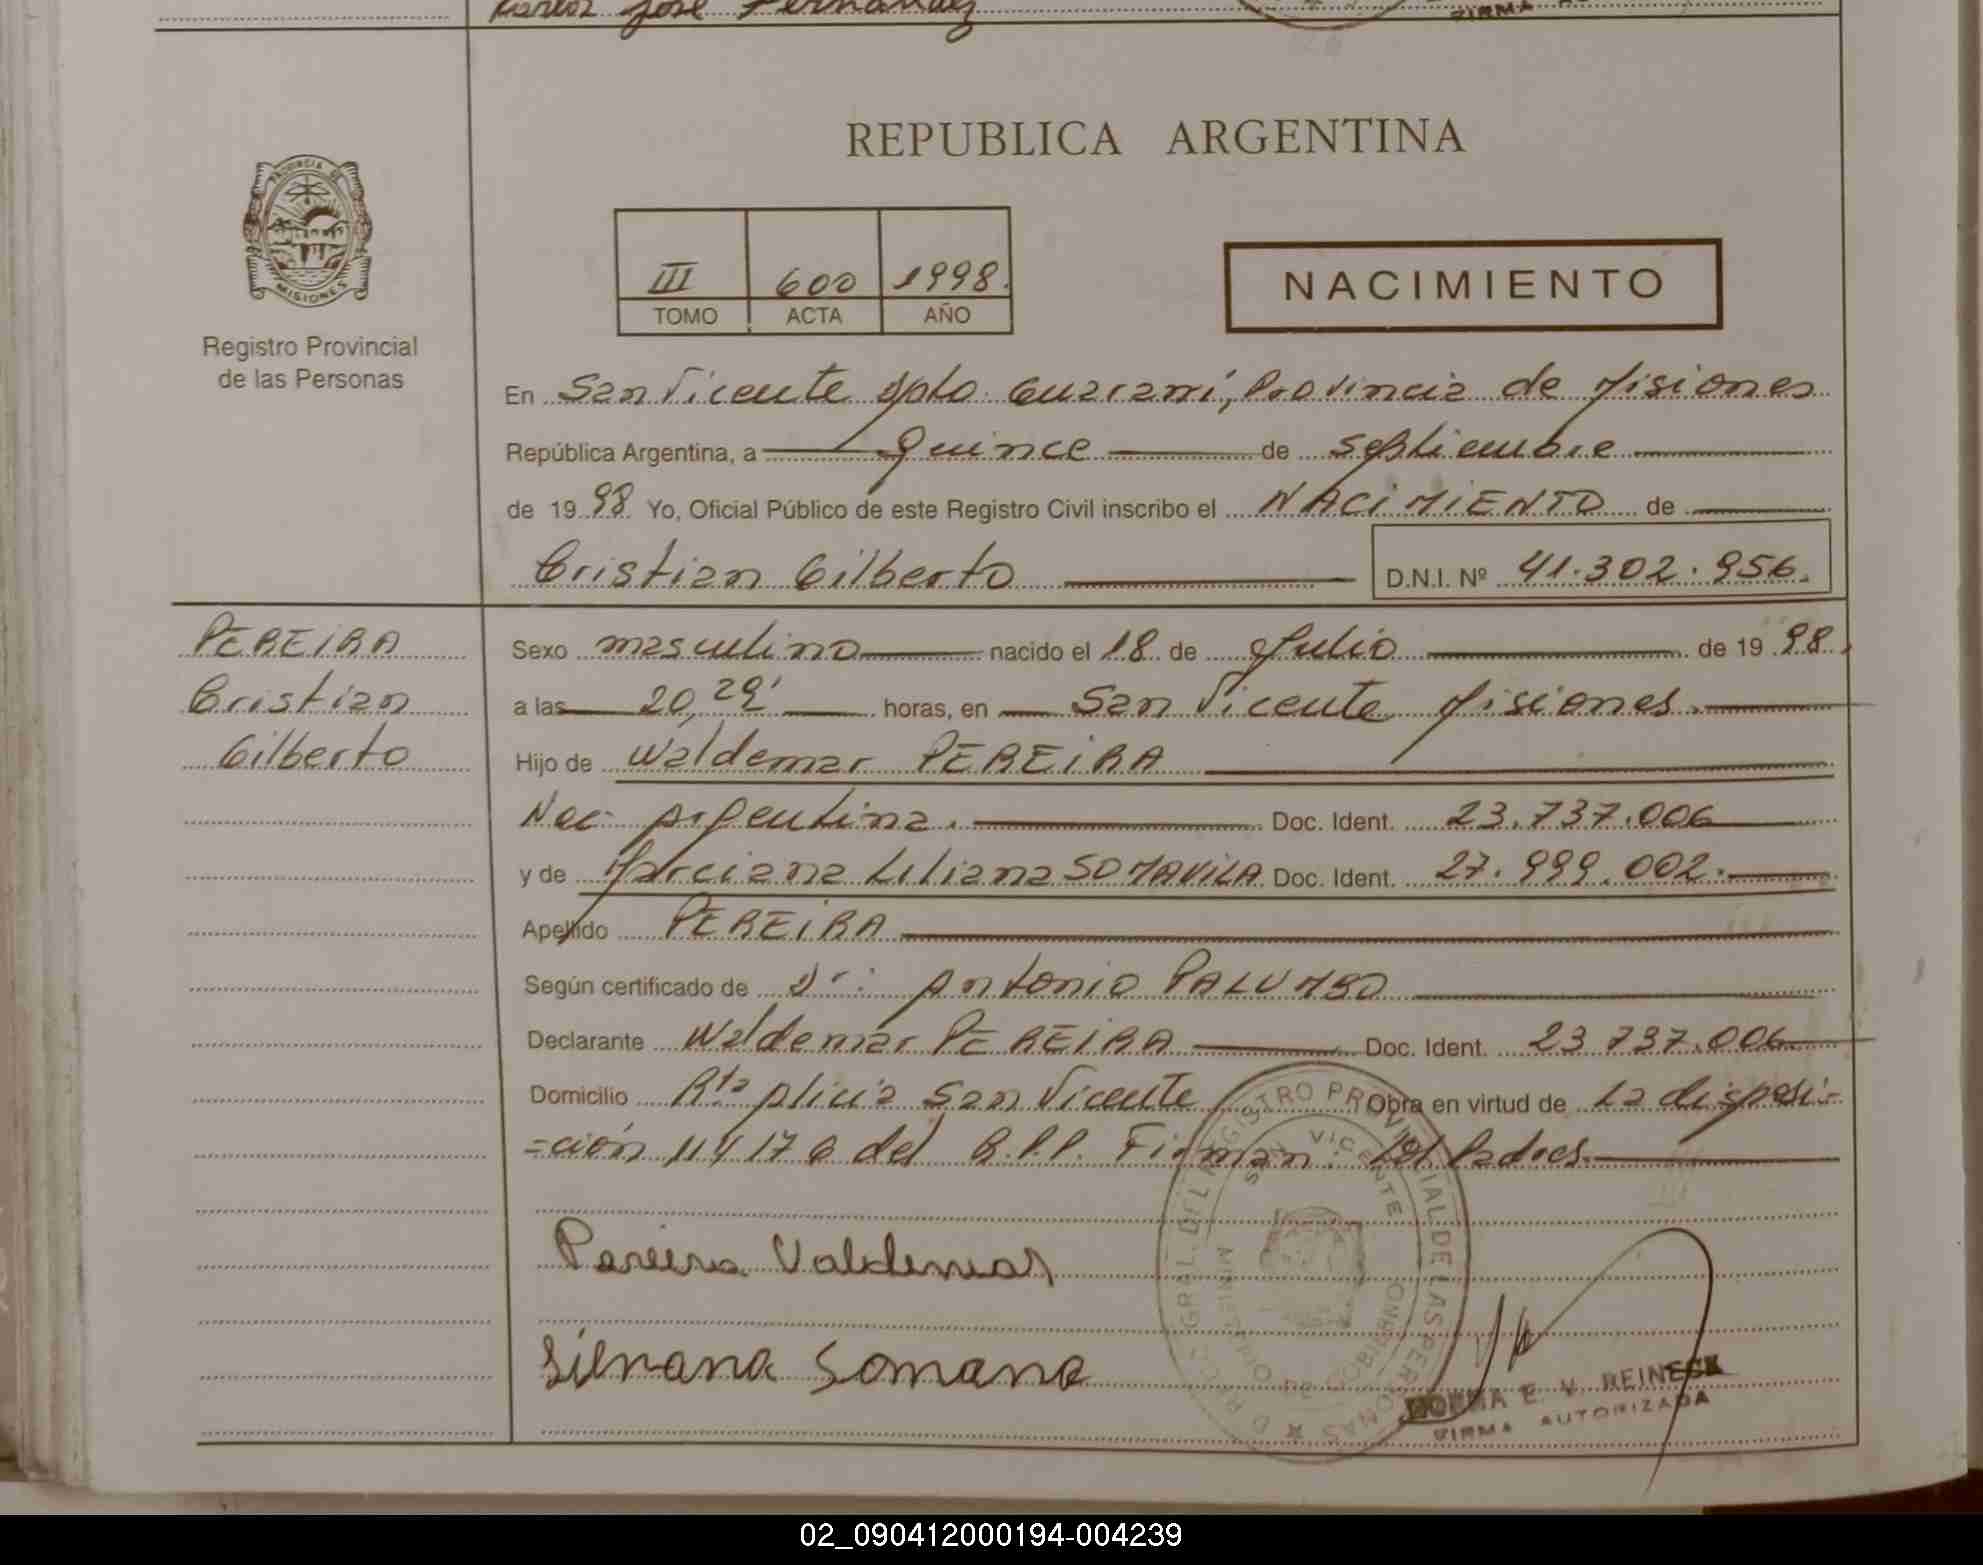 Carlos José Fernandez
FIRMA
REPUBLICA ARGENTINA
PROVINCIA DE
MISIONES
Registro Provincial
de las Personas
III 600 1998.
TOMO ACTA AÑO
NACIMIENTO
En San Vicente Dpto. Guaraní, Provincia de Misiones
República Argentina, a Quince de Septiembre
de 1998 Yo, Oficial Público de este Registro Civil inscribo el NACIMIENTO de
Cristian Gilberto D.N.I. Nº 41.302.956.
PEREIRA
Cristian
Gilberto
Sexo masculino nacido el 18 de Julio de 1998.
a las 20,29' horas, en San Vicente Misiones.
Hijo de Waldemar PEREIRA
Nac. Argentina. Doc. Ident. 23.737.006
y de Marciana Liliana SOMAVILA Doc. Ident. 27.999.002.
Apellido PEREIRA
Según certificado de Dr: Antonio PALUMBO
Declarante Waldemar PEREIRA Doc. Ident. 23.737.006
Domicilio Rta Alicia San Vicente Obra en virtud de La disposi-
=ción 11/176 del R.P.P. Firman: los Padres.
Pereira Valdemar
Silvana Somana
DIREC. GRAL. DEL REGISTRO PROVINCIAL DE LAS PERSONAS
SAN VICENTE
MINISTERIO DE GOBIERNO
NORMA E. V. REINECK
FIRMA AUTORIZADA
02_090412000194-004239